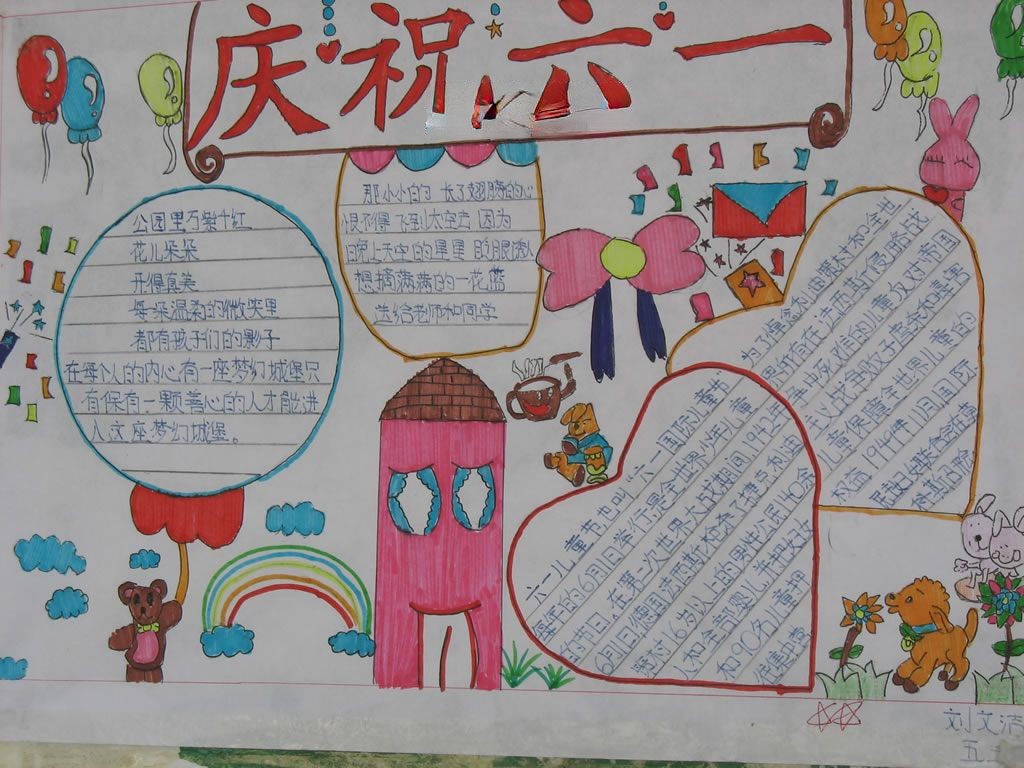 庆祝六一
公园里万紫千红
花儿朵朵
开得真美
每朵温柔的微笑里
都有孩子们的影子
在每个人的内心有一座梦幻城堡只
有保有一颗善心的人才能进
入这座梦幻城堡。
那小小的 长了翅膀的心
恨不得飞到太空去 因为
晚上天空的星星
想摘满满的一花篮
送给老师和同学
六一儿童节也叫"六一国际儿童节"
每年的6月1日举行是全世界少年儿童
的节日,在第二次世界大战期间,1942年
6月1日德国法西斯
16岁以上的男性公民140余
人和全部婴儿并把妇女
和90名儿童押
为了悼念利迪策村和全世
界所有在法西斯侵略战
争中死难的儿童反对帝国
主义战争贩子虐杀和毒害
儿童保障全世界儿童的
权益1949年11月国际
刘文洁
五